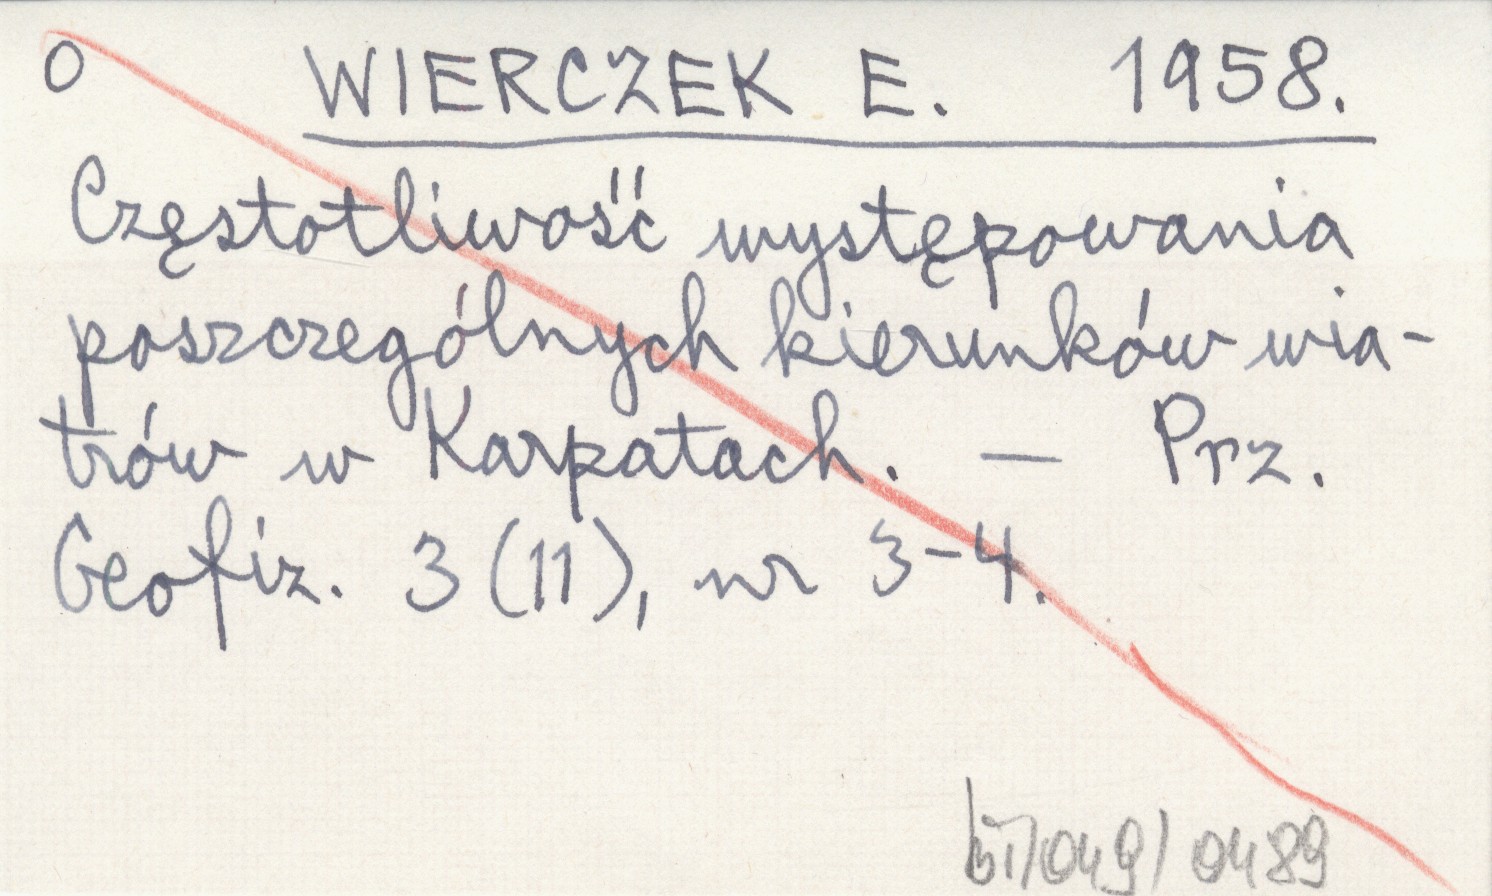 O WIERCZEK E. 1958.
Częstotliwość występowania
poszczególnych kierunków wia-
trów w Karpatach. — Prz.
Geofiz. 3 (11), nr 3-4.
0489